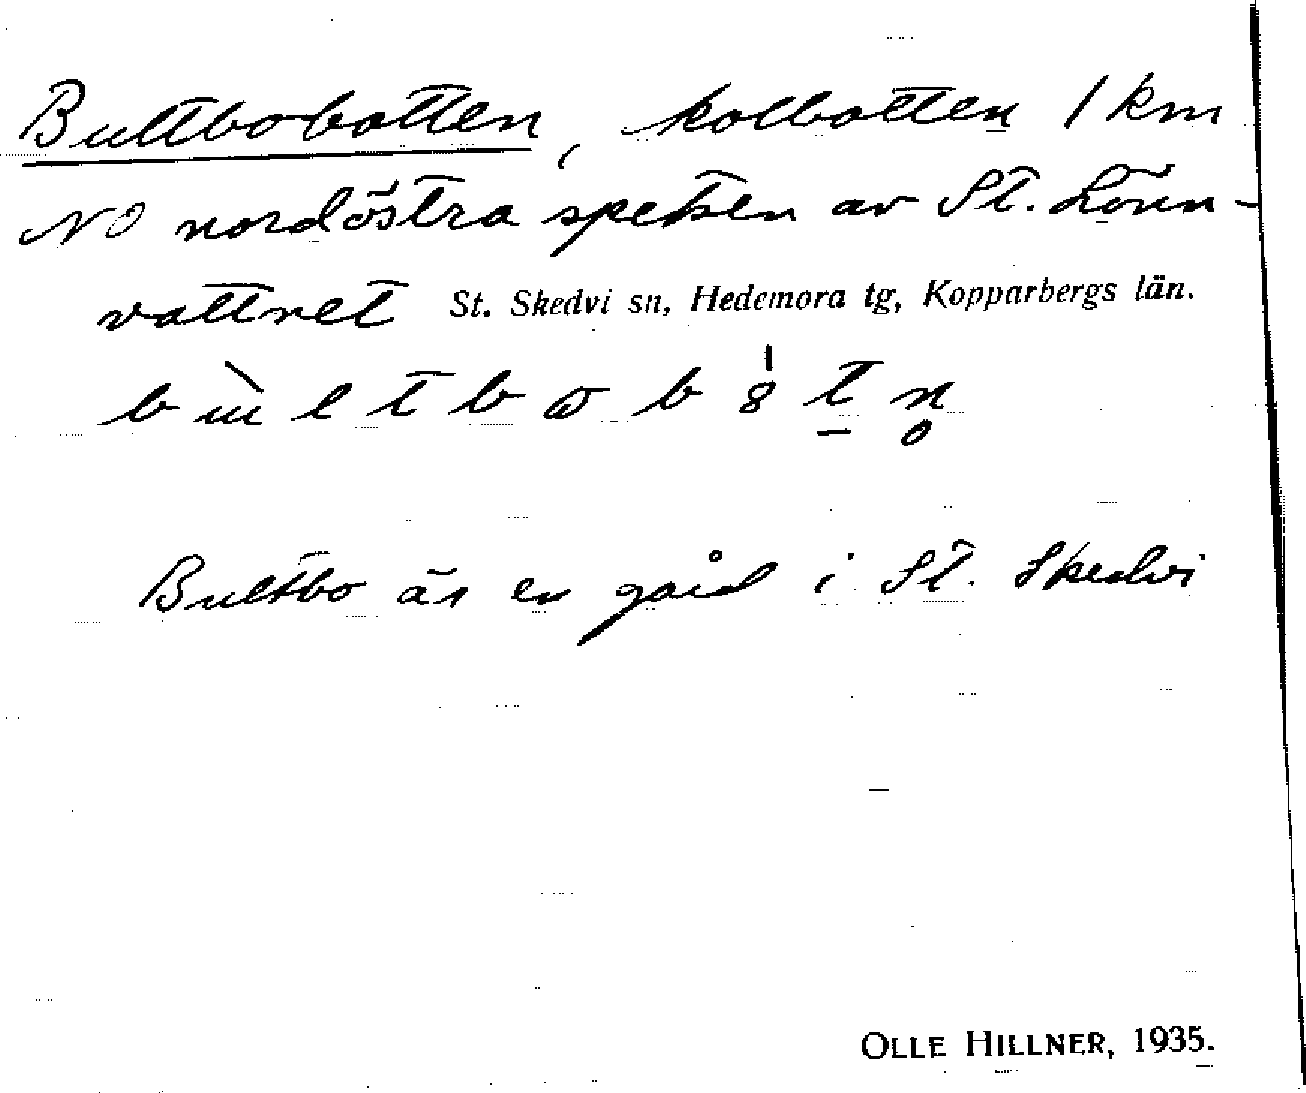 Bultbobotten, kolbotten 1 km
NO nordöstra spetsen av St. Lönn-
vattnet St. Skedvi sn, Hedemora tg, Kopparbergs län.
Bultbo är en gård i St. Skedvi
OLLE HILLNER, 1935.